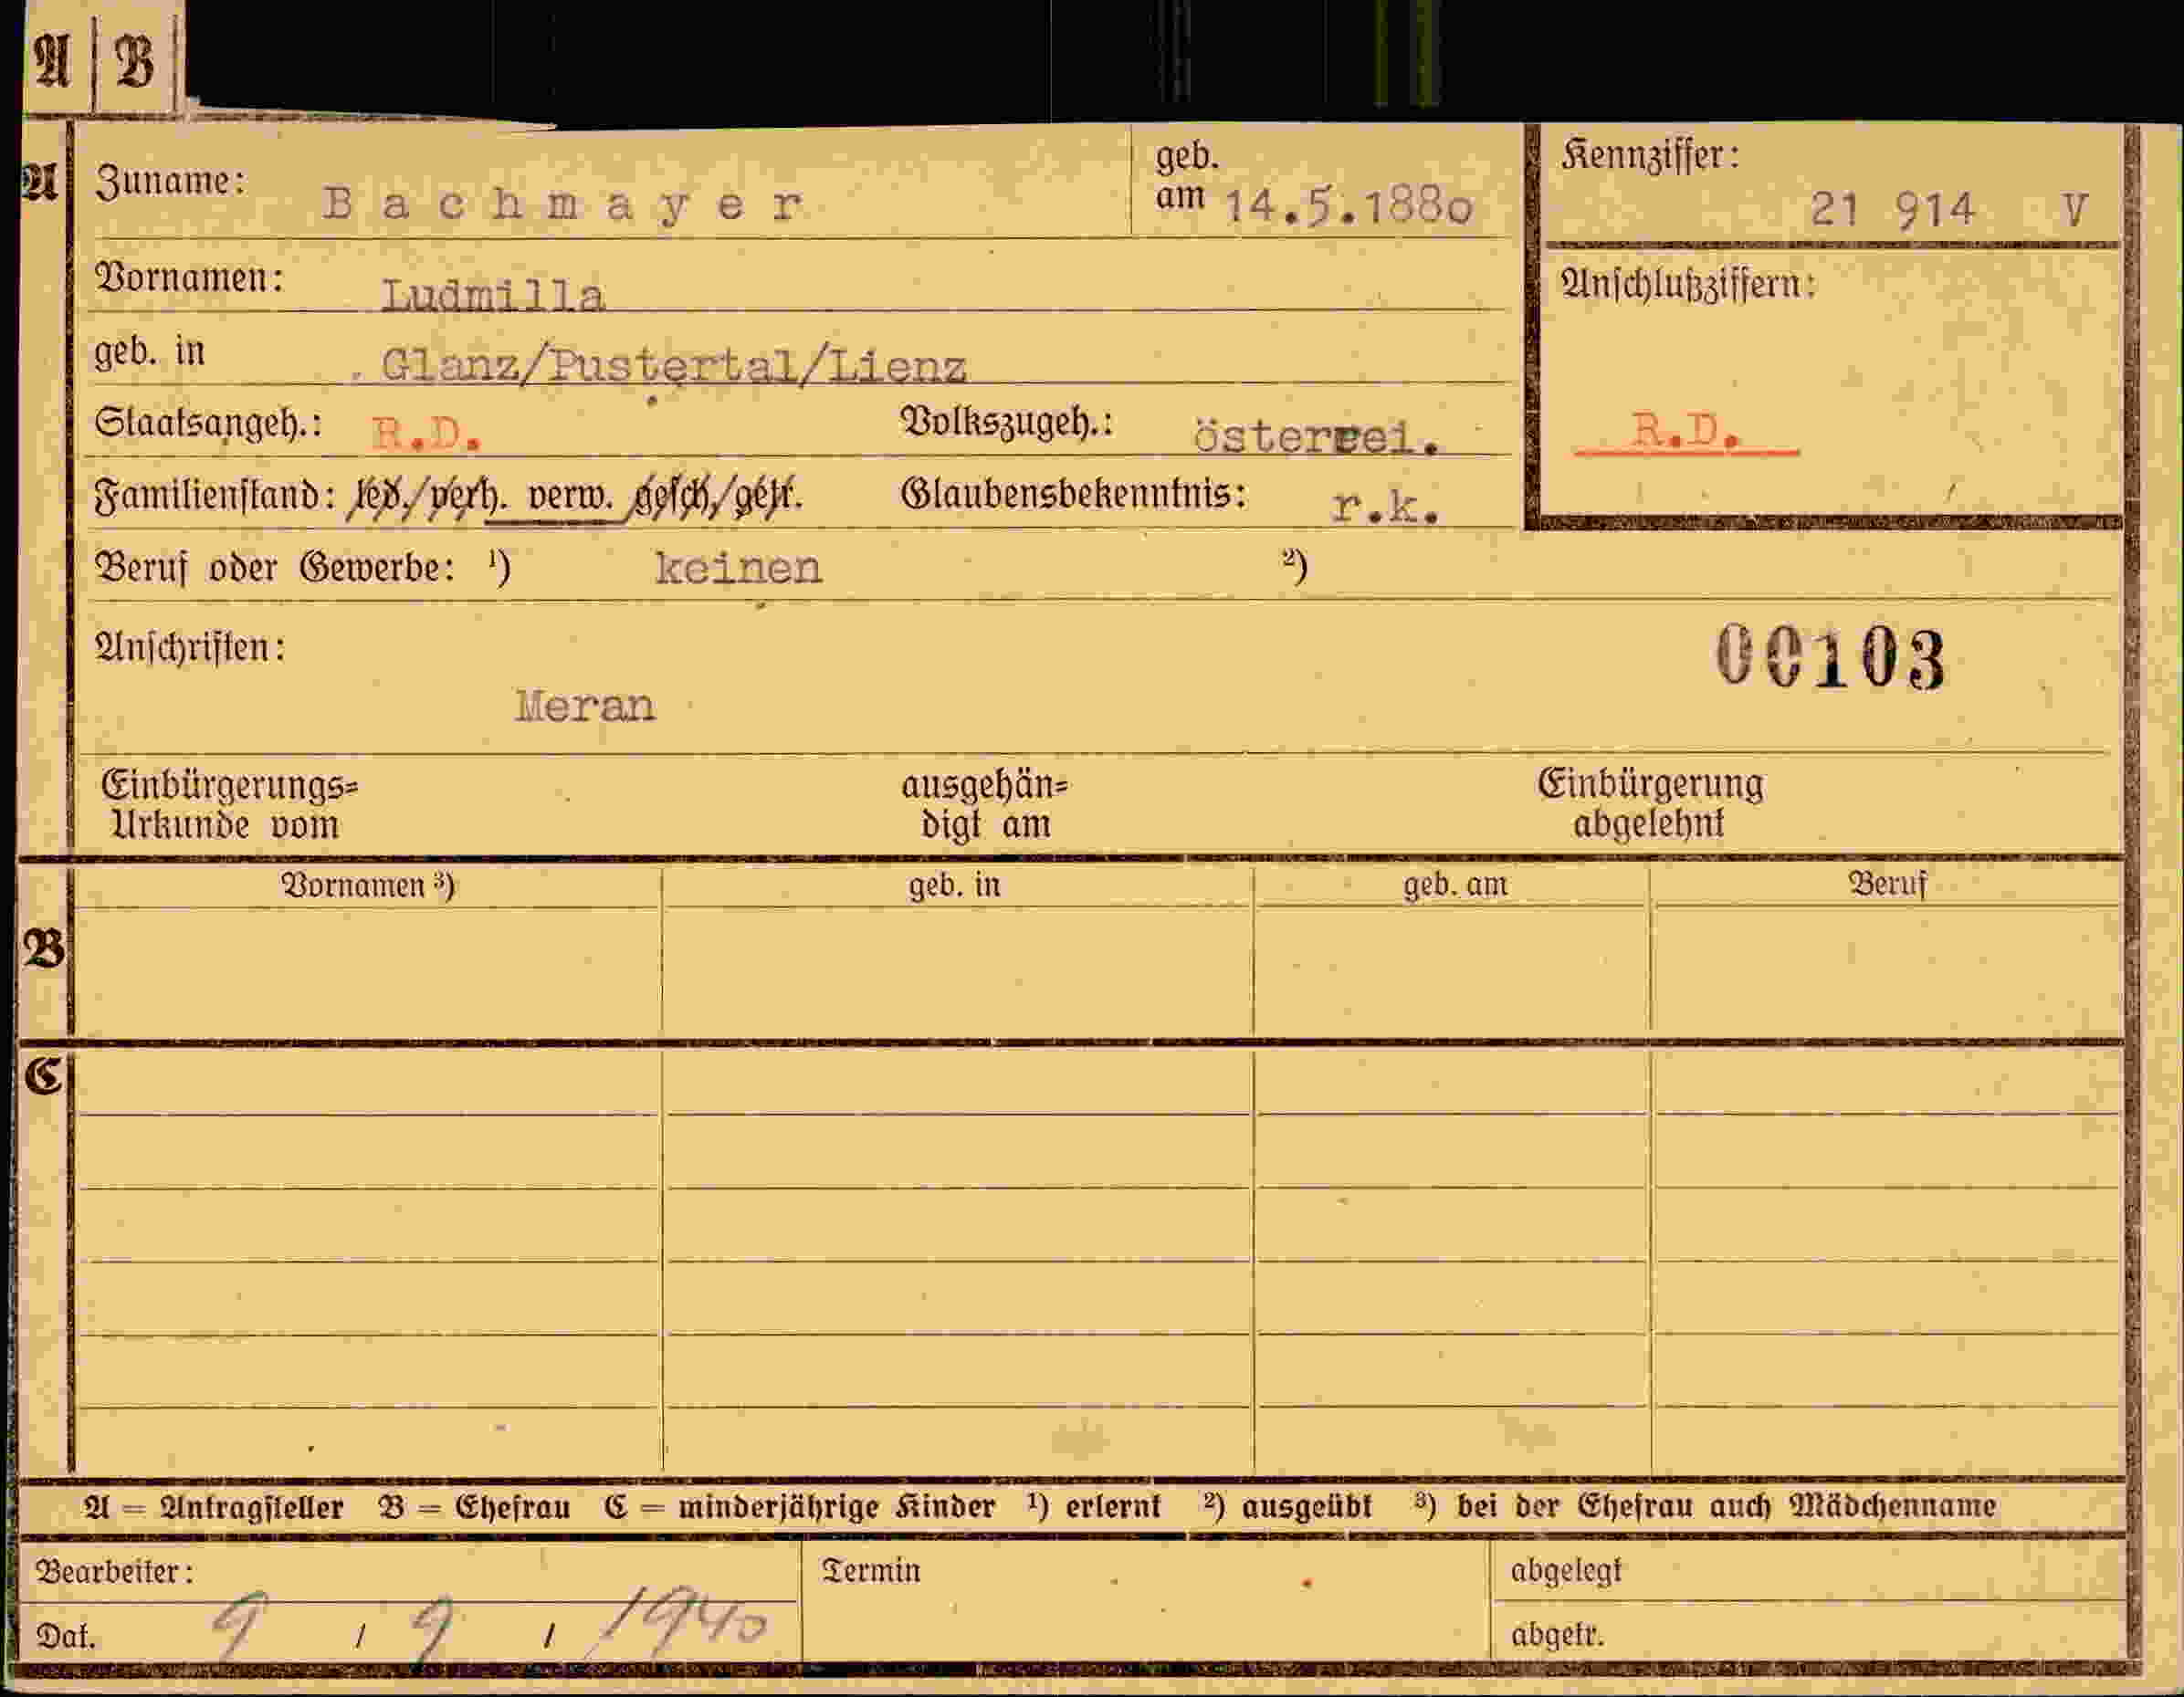 A B
A Zuname: Bachmayer geb. am 14.5.1880 Kennziffer: 21 914 V
Vornamen: Ludmilla Anschlußziffern:
geb. in Glanz/Pustertal/Lienz
Staatsangeh.: R.D. Volkszugeh.: österrei. R.D.
Familienstand: led./verh. verw. gesch./getr. Glaubensbekenntnis: r.k.
Beruf oder Gewerbe: ¹) keinen ²)
Anschriften: 00103
Meran
Einbürgerungs= ausgehän= Einbürgerung
Urkunde vom digt am abgelehnt
Vornamen ³) geb. in geb. am Beruf
B
C
A = Antragsteller B = Ehefrau C = minderjährige Kinder ¹) erlernt ²) ausgeübt ³) bei der Ehefrau auch Mädchenname
Bearbeiter: Termin abgelegt
Dat. 9 / 9 / 1940 abgetr.